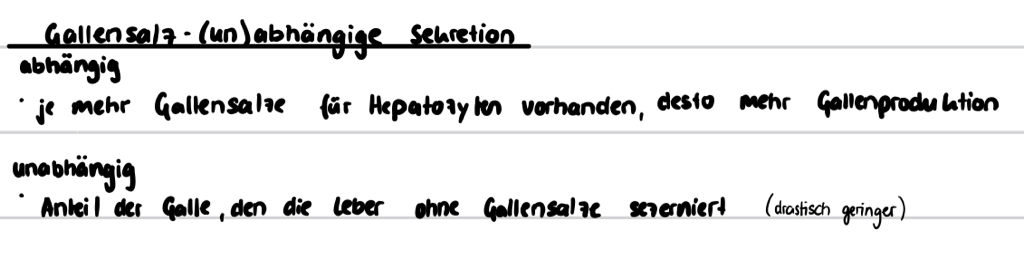 Gallensalz-(un)abhängige Sekretion
abhängig
· je mehr Gallensalze für Hepatozyten vorhanden, desto mehr Gallenproduktion
unabhängig
· Anteil der Galle, den die Leber ohne Gallensalze sezerniert (drastisch geringer)